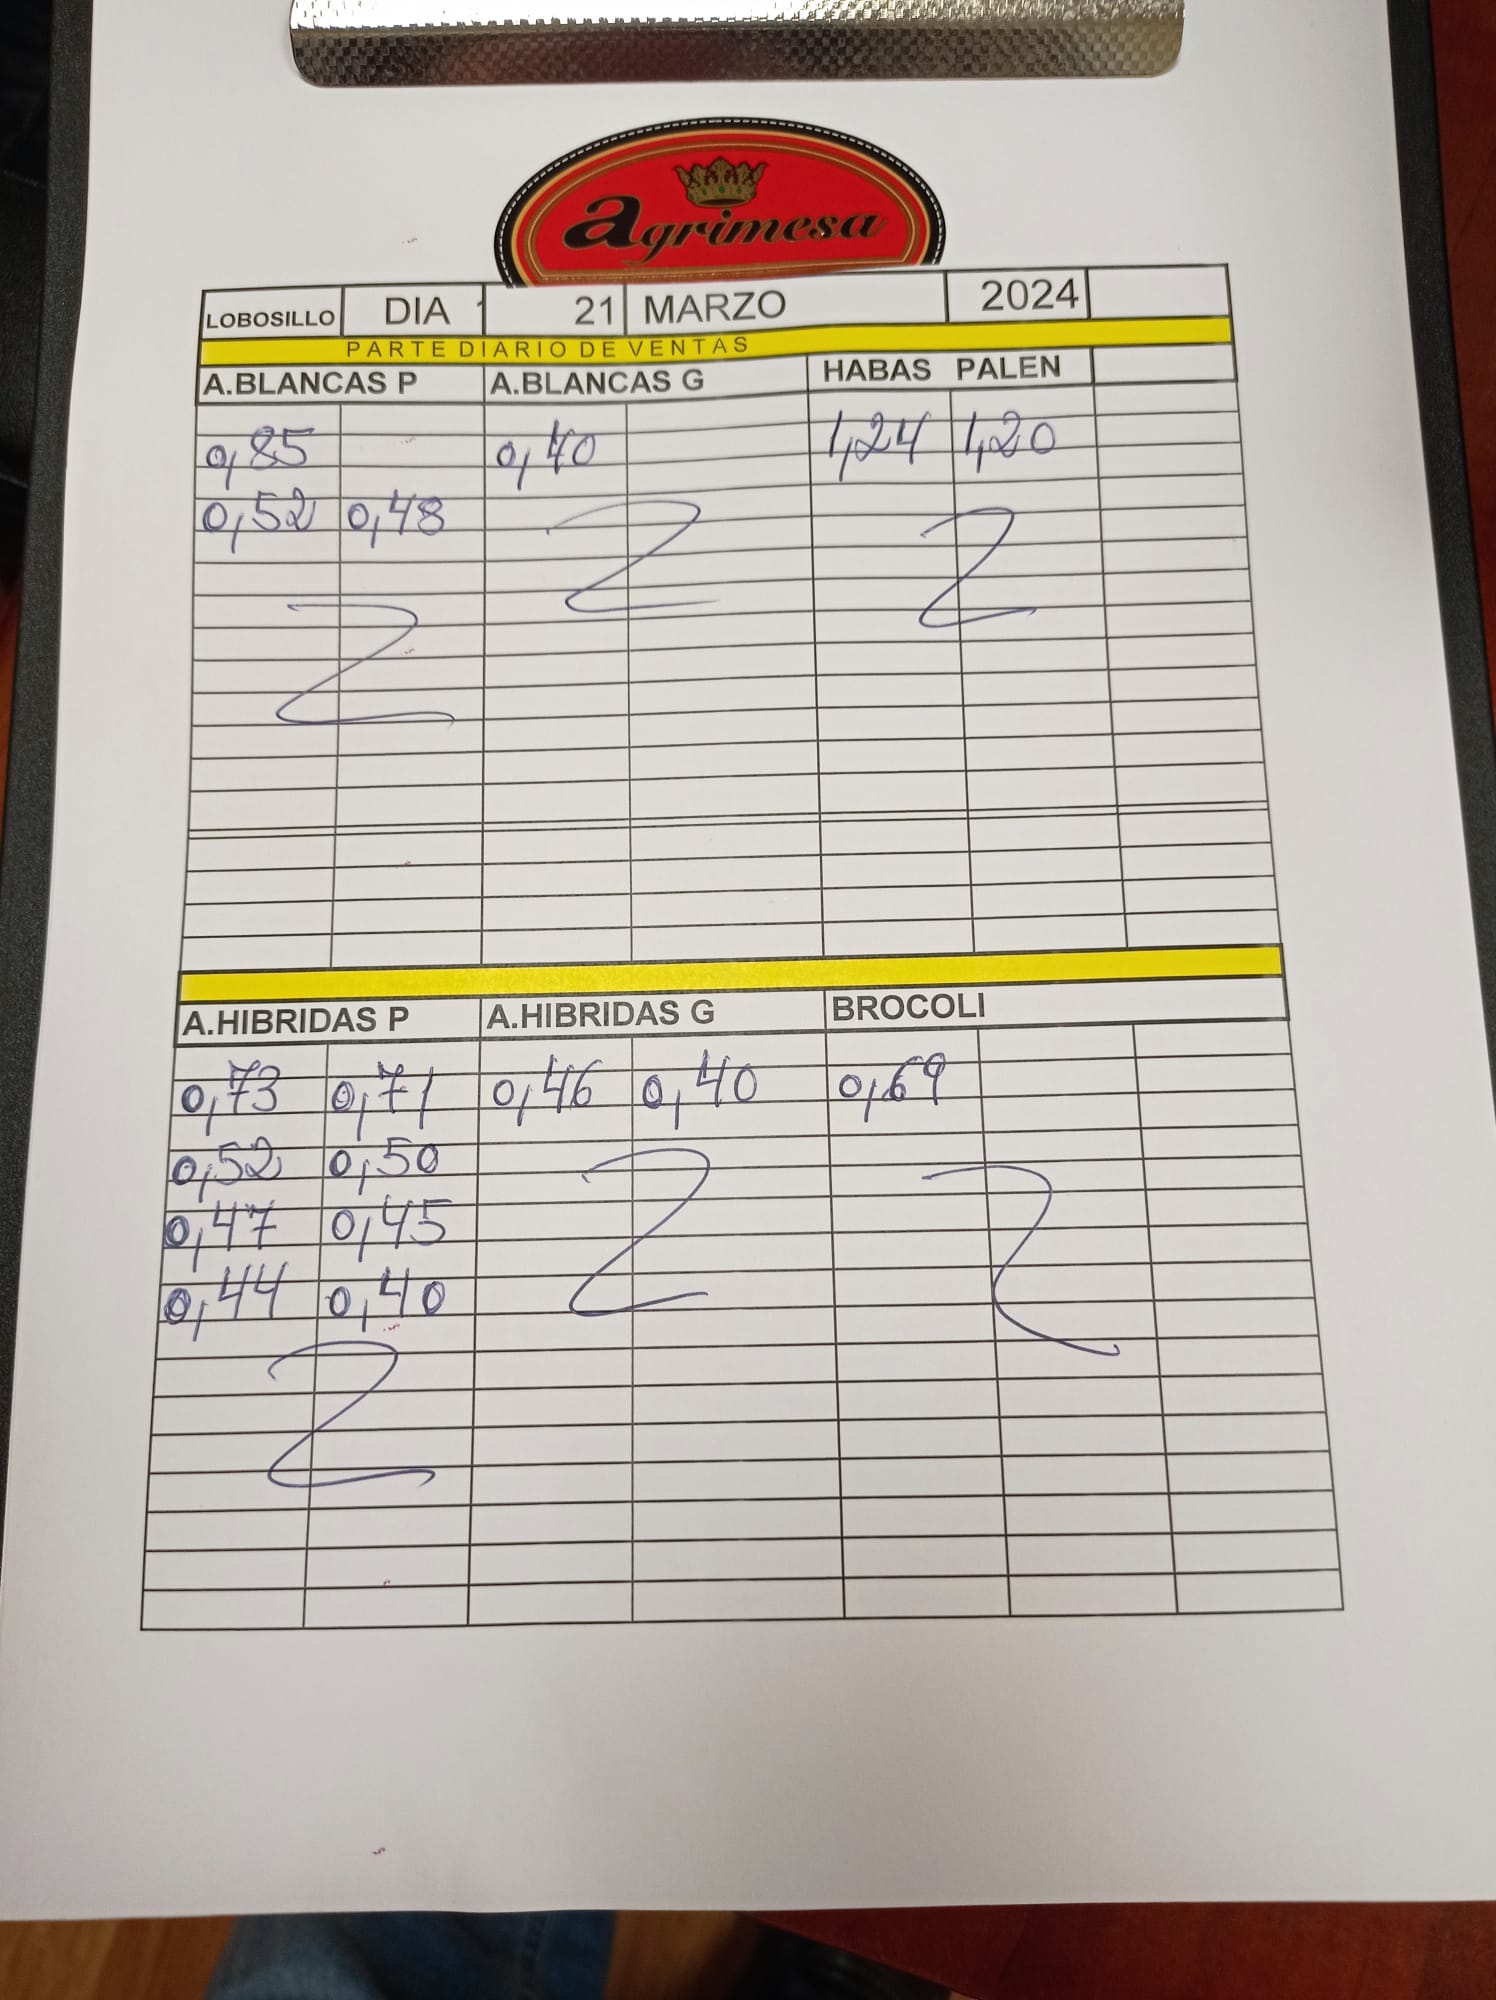 agrimesa
LOBOSILLO DIA 21 MARZO 2024
PARTE DIARIO DE VENTAS
A.BLANCAS P A.BLANCAS G HABAS PALEN
0,85 0,40 1,24 1,20
0,52 0,48
A.HIBRIDAS P A.HIBRIDAS G BROCOLI
0,73 0,71 0,46 0,40 0,69
0,52 0,50
0,47 0,45
0,44 0,40